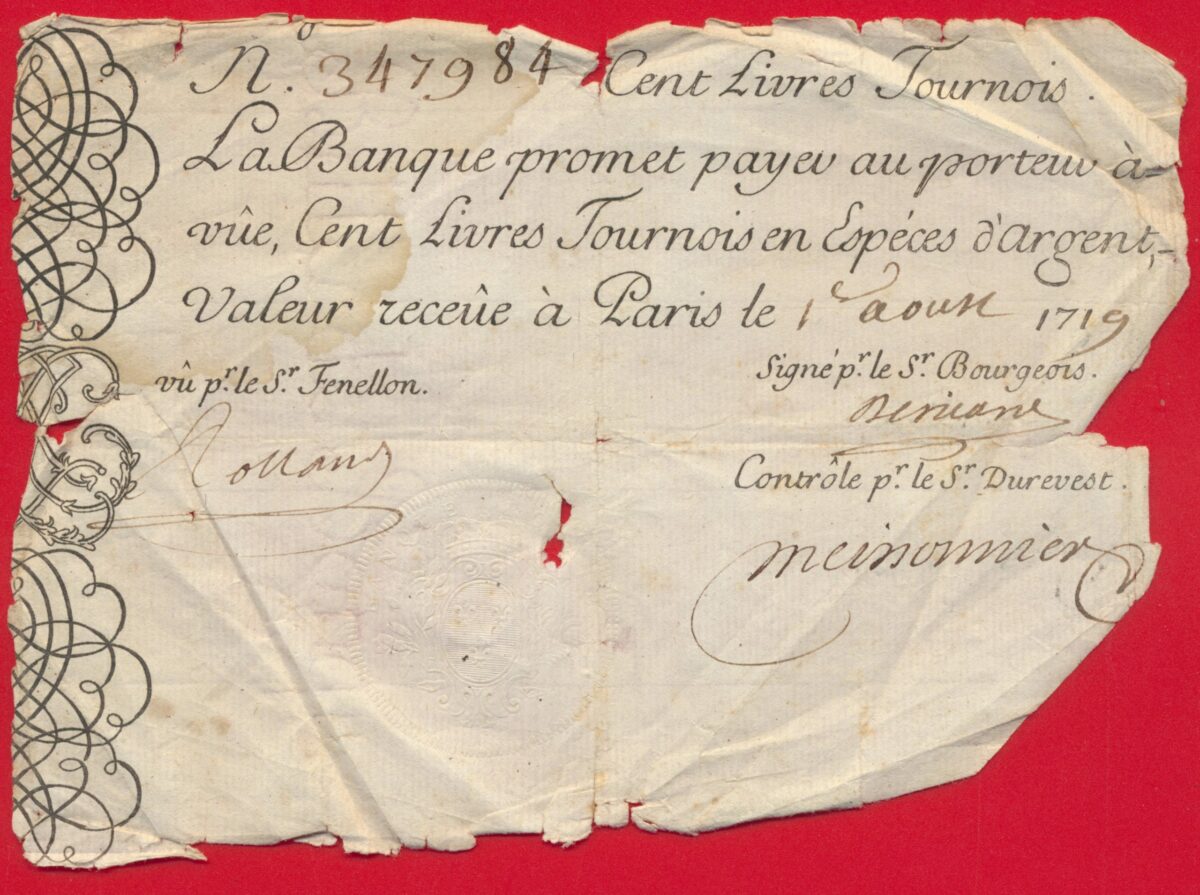 N.º 347984 Cent Livres Tournois.
La Banque promet payer au porteur à-
vûe, Cent Livres Tournois en Espéces d'Argent,-
Valeur receûe à Paris le 1er aoust 1719
vû pr. le Sr. Fenellon.
Signé pr. le Sr. Bourgeois.
Rolland
Contrôle pr. le Sr. Durevest.